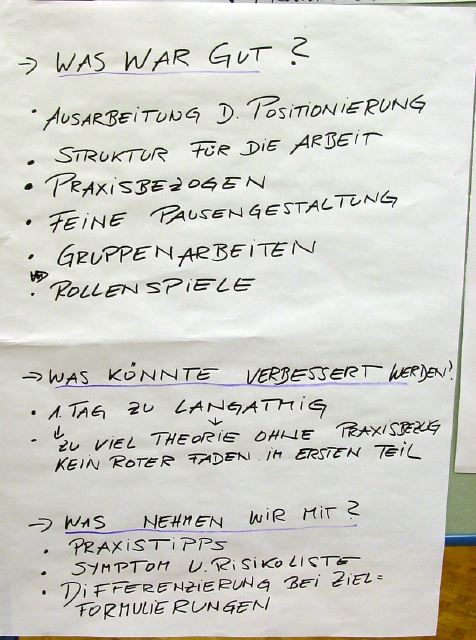 → WAS WAR GUT ?
· AUSARBEITUNG D. POSITIONIERUNG
• STRUKTUR FÜR DIE ARBEIT
• PRAXISBEZOGEN
• FEINE PAUSENGESTALTUNG
• GRUPPENARBEITEN
• ROLLENSPIELE
→ WAS KÖNNTE VERBESSERT WERDEN?
• 1. TAG ZU LANGATMIG
- ZU VIEL THEORIE OHNE PRAXISBEZUG
KEIN ROTER FADEN IM ERSTEN TEIL
→ WAS NEHMEN WIR MIT ?
• PRAXISTIPPS
• SYMPTOM U. RISIKOLISTE
• DIFFERENZIERUNG BEI ZIEL=
FORMULIERUNGEN